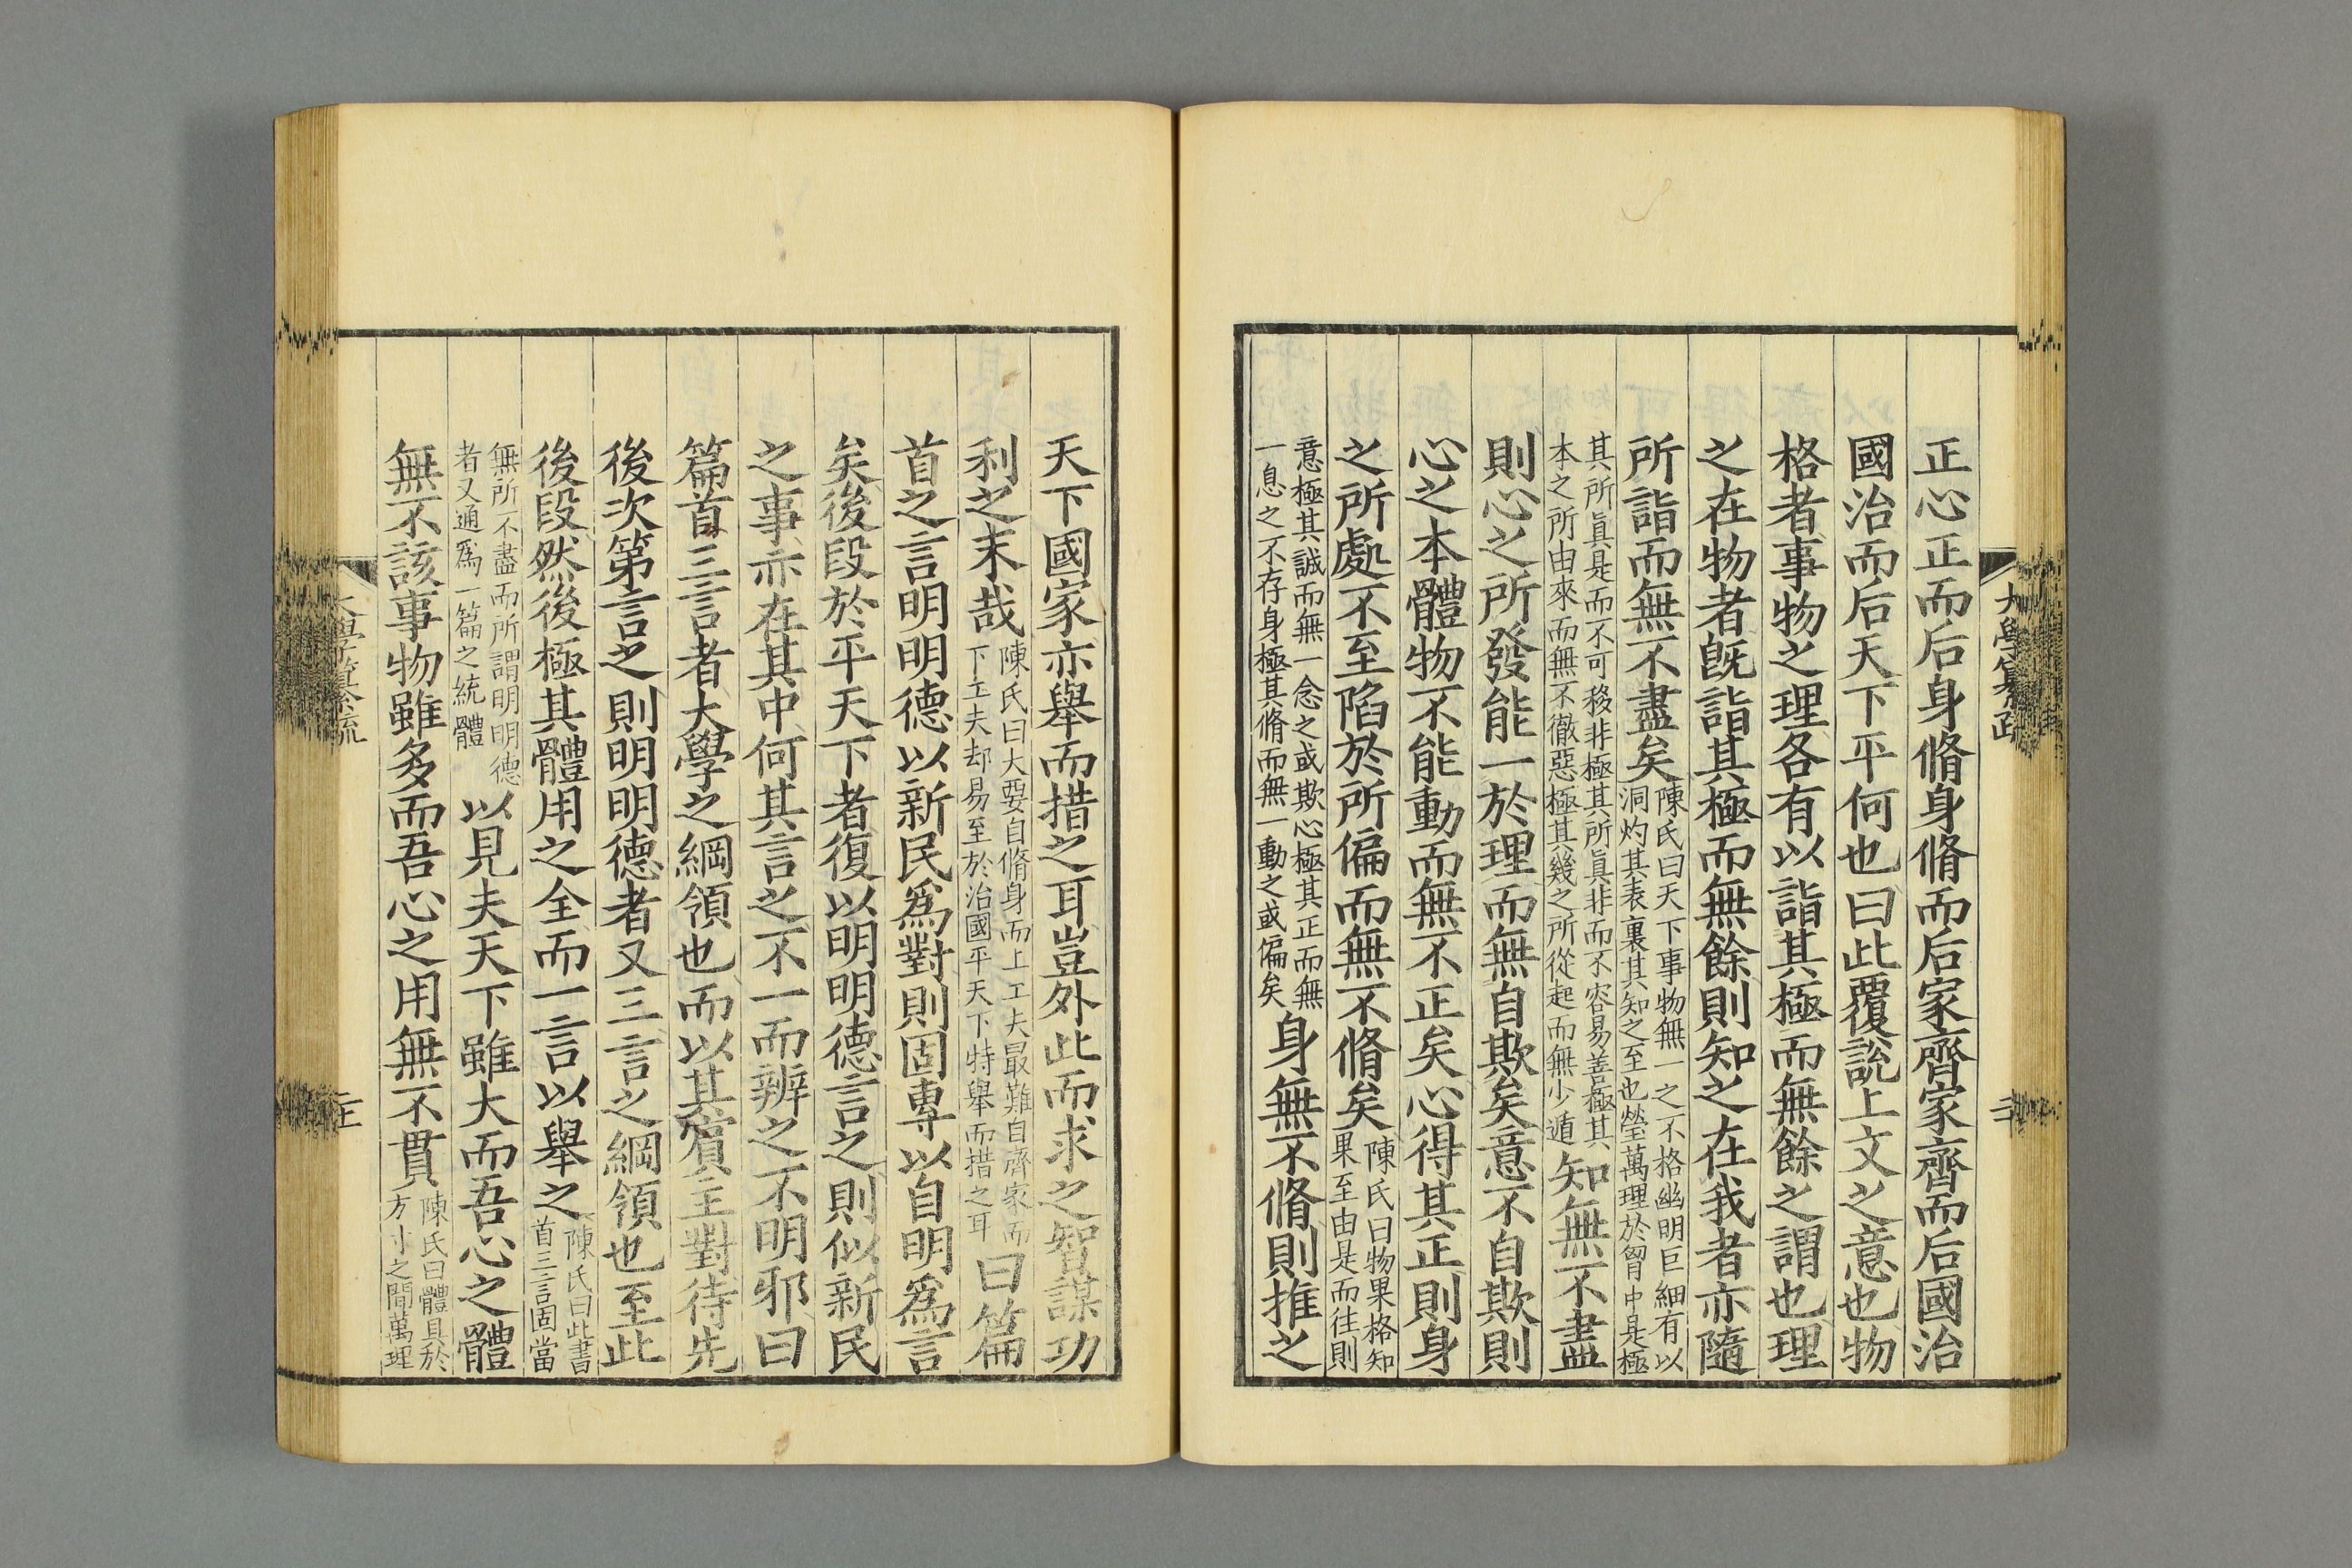 大學纂疏
正心正而后身脩身脩而后家齊家齊而后國治
國治而后天下平何也曰此覆說上文之意也物
格者事物之理各有以詣其極而無餘之謂也理
之在物者旣詣其極而無餘則知之在我者亦隨
所詣而無不盡矣
陳氏曰天下事物無一之不格幽明巨細有以
洞灼其表裏其知之至也瑩萬理於胷中是極
其所眞是而不可移非極其所眞非而不容易善極其
本之所由來而無不徹惡極其幾之所從起而無少遁
知無不盡
則心之所發能一於理而無自欺矣意不自欺則
心之本體物不能動而無不正矣心得其正則身
之所處不至陷於所偏而無不脩矣
陳氏曰物果格知
果至由是而往則
意極其誠而無一念之或欺心極其正而無
一息之不存身極其脩而無一動之或偏矣
身無不脩則推之
天下國家亦舉而措之耳豈外此而求之智謀功
利之末哉
陳氏曰大要自脩身而上工夫最難自齊家而
下工夫却易至於治國平天下特舉而措之耳
曰篇
首之言明明德以新民爲對則固專以自明爲言
矣後段於平天下者復以明明德言之則似新民
之事亦在其中何其言之不一而辨之不明邪曰
篇首三言者大學之綱領也而以其賓主對待先
後次第言之則明明德者又三言之綱領也至此
後段然後極其體用之全而一言以舉之
陳氏曰此書
首三言固當
無所不盡而所謂明明德
者又通爲一篇之統體
以見夫天下雖大而吾心之體
無不該事物雖多而吾心之用無不貫
陳氏曰體具於
方寸之間萬理